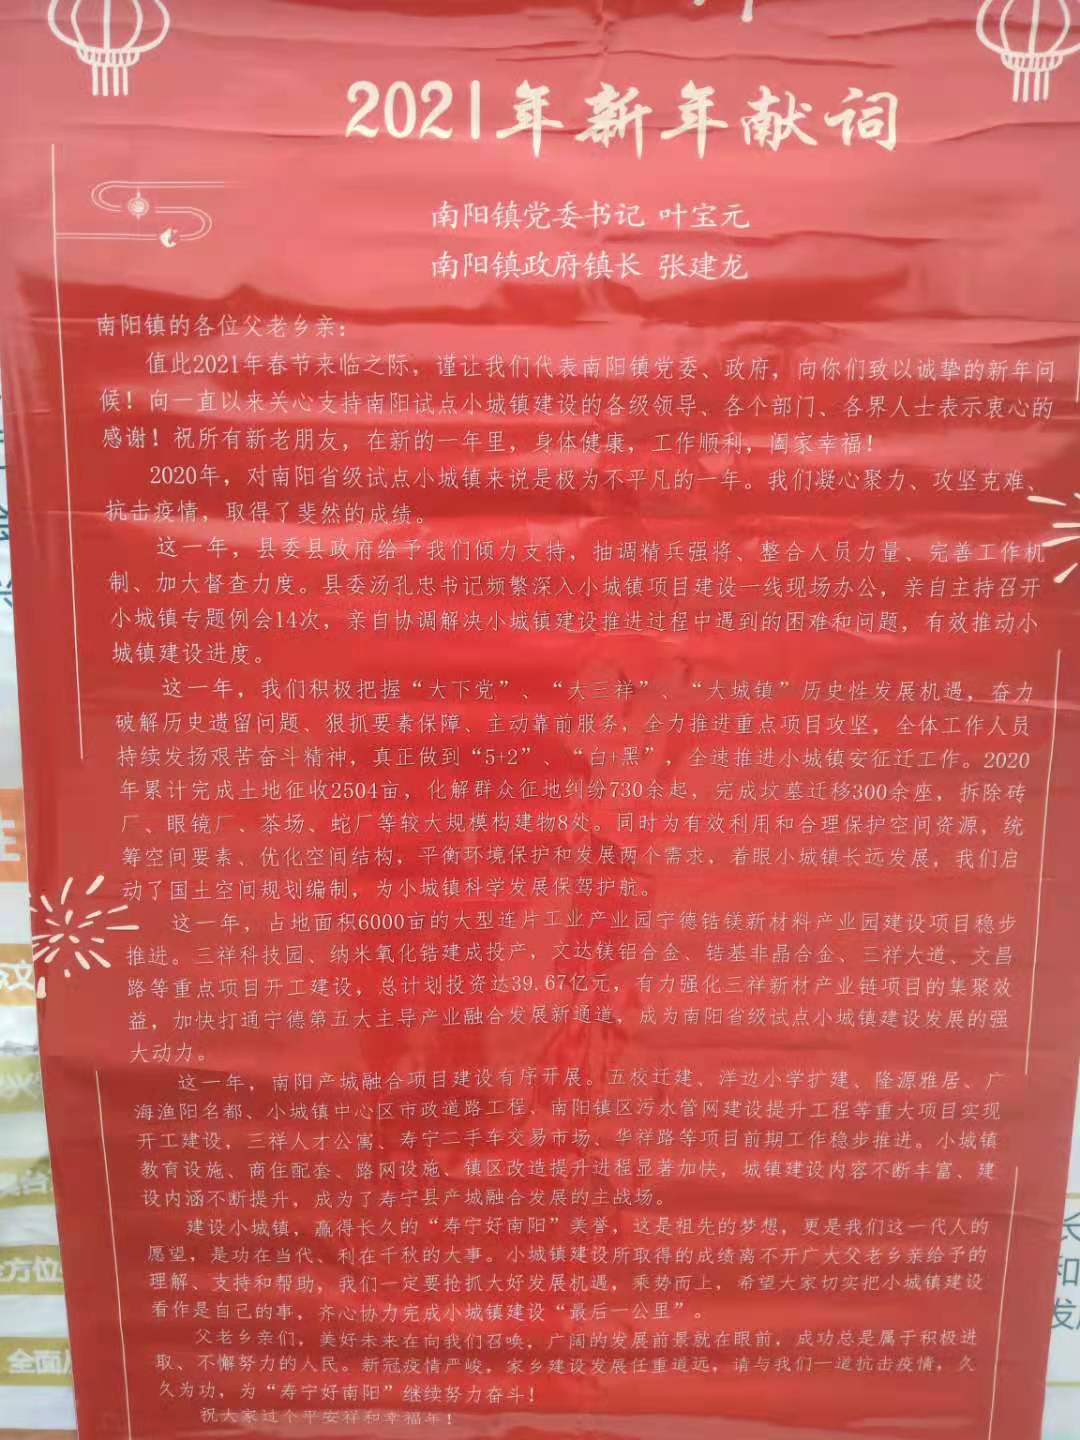 2021年新年献词
南阳镇党委书记 叶宝元
南阳镇政府镇长 张建龙
南阳镇的各位父老乡亲：
值此2021年春节来临之际，谨让我们代表南阳镇党委、政府，向你们致以诚挚的新年问
候！向一直以来关心支持南阳试点小城镇建设的各级领导、各个部门、各界人士表示衷心的
感谢！祝所有新老朋友，在新的一年里，身体健康，工作顺利，阖家幸福！
2020年，对南阳省级试点小城镇来说是极为不平凡的一年。我们凝心聚力、攻坚克难、
抗击疫情，取得了斐然的成绩。
这一年，县委县政府给予我们倾力支持，抽调精兵强将、整合人员力量、完善工作机
制、加大督查力度。县委汤孔忠书记频繁深入小城镇项目建设一线现场办公，亲自主持召开
小城镇专题例会14次，亲自协调解决小城镇建设推进过程中遇到的困难和问题，有效推动小
城镇建设进度。
这一年，我们积极把握“大下党”、“大三祥”、“大城镇”历史性发展机遇，奋力
破解历史遗留问题、狠抓要素保障、主动靠前服务，全力推进重点项目攻坚，全体工作人员
持续发扬艰苦奋斗精神，真正做到“5+2”、“白+黑”，全速推进小城镇安征迁工作。2020
年累计完成土地征收2504亩，化解群众征地纠纷730余起，完成坟墓迁移300余座，拆除砖
厂、眼镜厂、茶场、蛇厂等较大规模构建物8处。同时为有效利用和合理保护空间资源，统
筹空间要素、优化空间结构，平衡环境保护和发展两个需求，着眼小城镇长远发展，我们启
动了国土空间规划编制，为小城镇科学发展保驾护航。
这一年，占地面积6000亩的大型连片工业产业园宁德锆镁新材料产业园建设项目稳步
推进。三祥科技园、纳米氧化锆建成投产，文达镁铝合金、锆基非晶合金、三祥大道、文昌
路等重点项目开工建设，总计划投资达39.67亿元，有力强化三祥新材产业链项目的集聚效
益，加快打通宁德第五大主导产业融合发展新通道，成为南阳省级试点小城镇建设发展的强
大动力。
这一年，南阳产城融合项目建设有序开展。五校迁建、洋边小学扩建、隆源雅居、广
海渔阳名都、小城镇中心区市政道路工程、南阳镇区污水管网建设提升工程等重大项目实现
开工建设，三祥人才公寓、寿宁二手车交易市场、华祥路等项目前期工作稳步推进。小城镇
教育设施、商住配套、路网设施、镇区改造提升进程显著加快，城镇建设内容不断丰富、建
设内涵不断提升，成为了寿宁县产城融合发展的主战场。
建设小城镇，赢得长久的“寿宁好南阳”美誉，这是祖先的梦想，更是我们这一代人的
愿望，是功在当代、利在千秋的大事。小城镇建设所取得的成绩离不开广大父老乡亲给予的
理解、支持和帮助，我们一定要抢抓大好发展机遇，乘势而上，希望大家切实把小城镇建设
看作是自己的事，齐心协力完成小城镇建设“最后一公里”。
父老乡亲们，美好未来在向我们召唤，广阔的发展前景就在眼前，成功总是属于积极进
取、不懈努力的人民。新冠疫情严峻，家乡建设发展任重道远，请与我们一道抗击疫情，久
久为功，为“寿宁好南阳”继续努力奋斗！
祝大家过个平安祥和幸福年！
全方位
全面
长
和
发